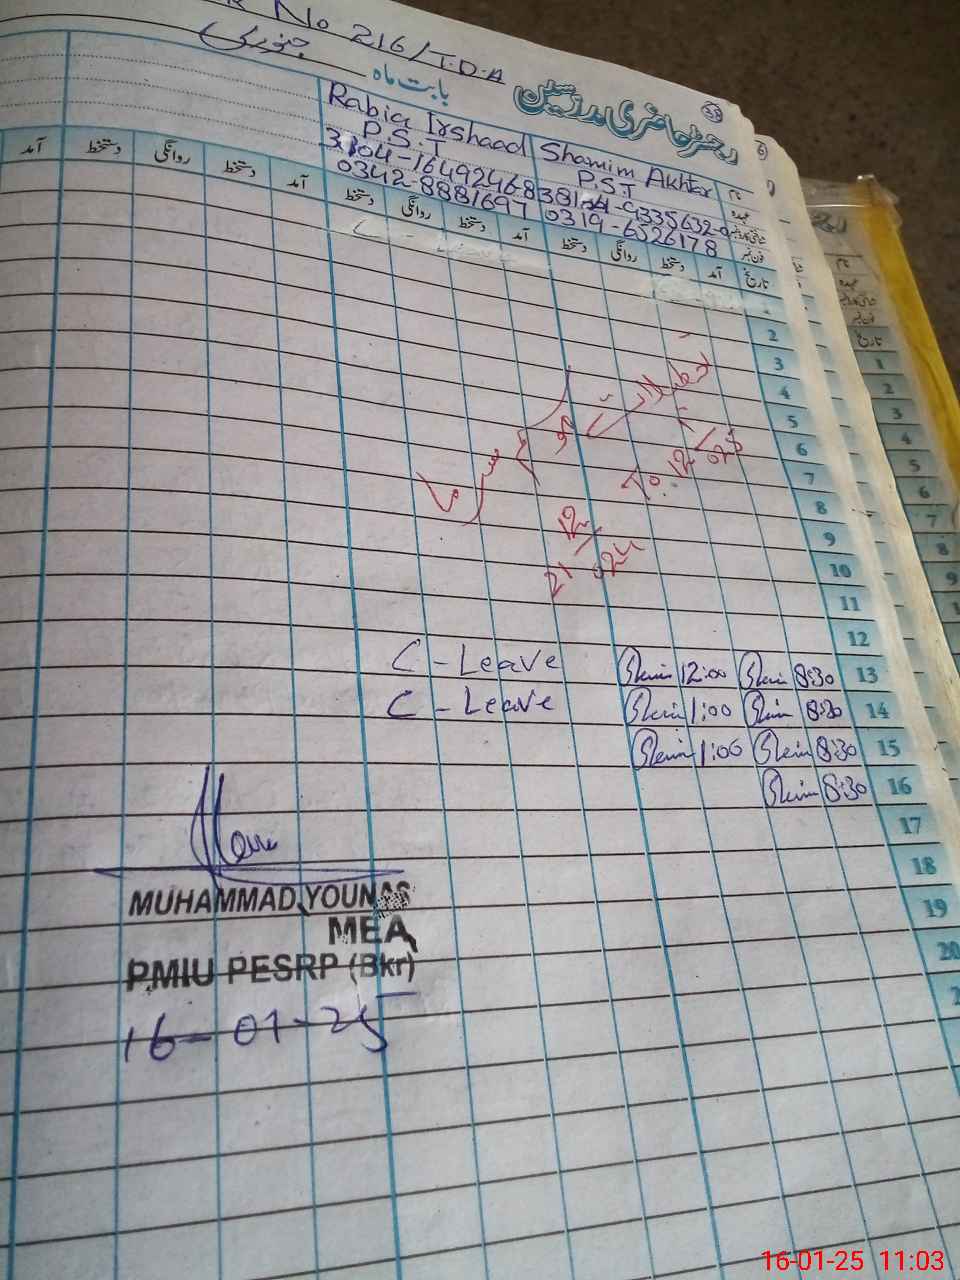 No 216/T.D.A
رجسٹر حاضری مدرسین
بابت ماہ جنوری
نام Shamim Akhtar Rabia Irshaad
عہدہ P.S.T P.S.T
فون نمبر 0319-6526178 0342-8881697
تاریخ آمد دستخط روانگی دستخط آمد دستخط روانگی دستخط آمد دستخط روانگی دستخط آمد
2
3
4
5
6
7
8
9
10
11
12
13 8:30 12:00 C-Leave
14 8:30 1:00 C-Leave
15 8:30 1:00
16 8:30
17
18
19
20
موسم سرما
تعطیلات
21 12 024
To. 12
MUHAMMAD YOUNAS
MEA
PMIU PESRP (Bkr)
16-01-25
نام
عہدہ
فون نمبر
تاریخ
1
2
3
4
5
6
7
8
9
16-01-25 11:03